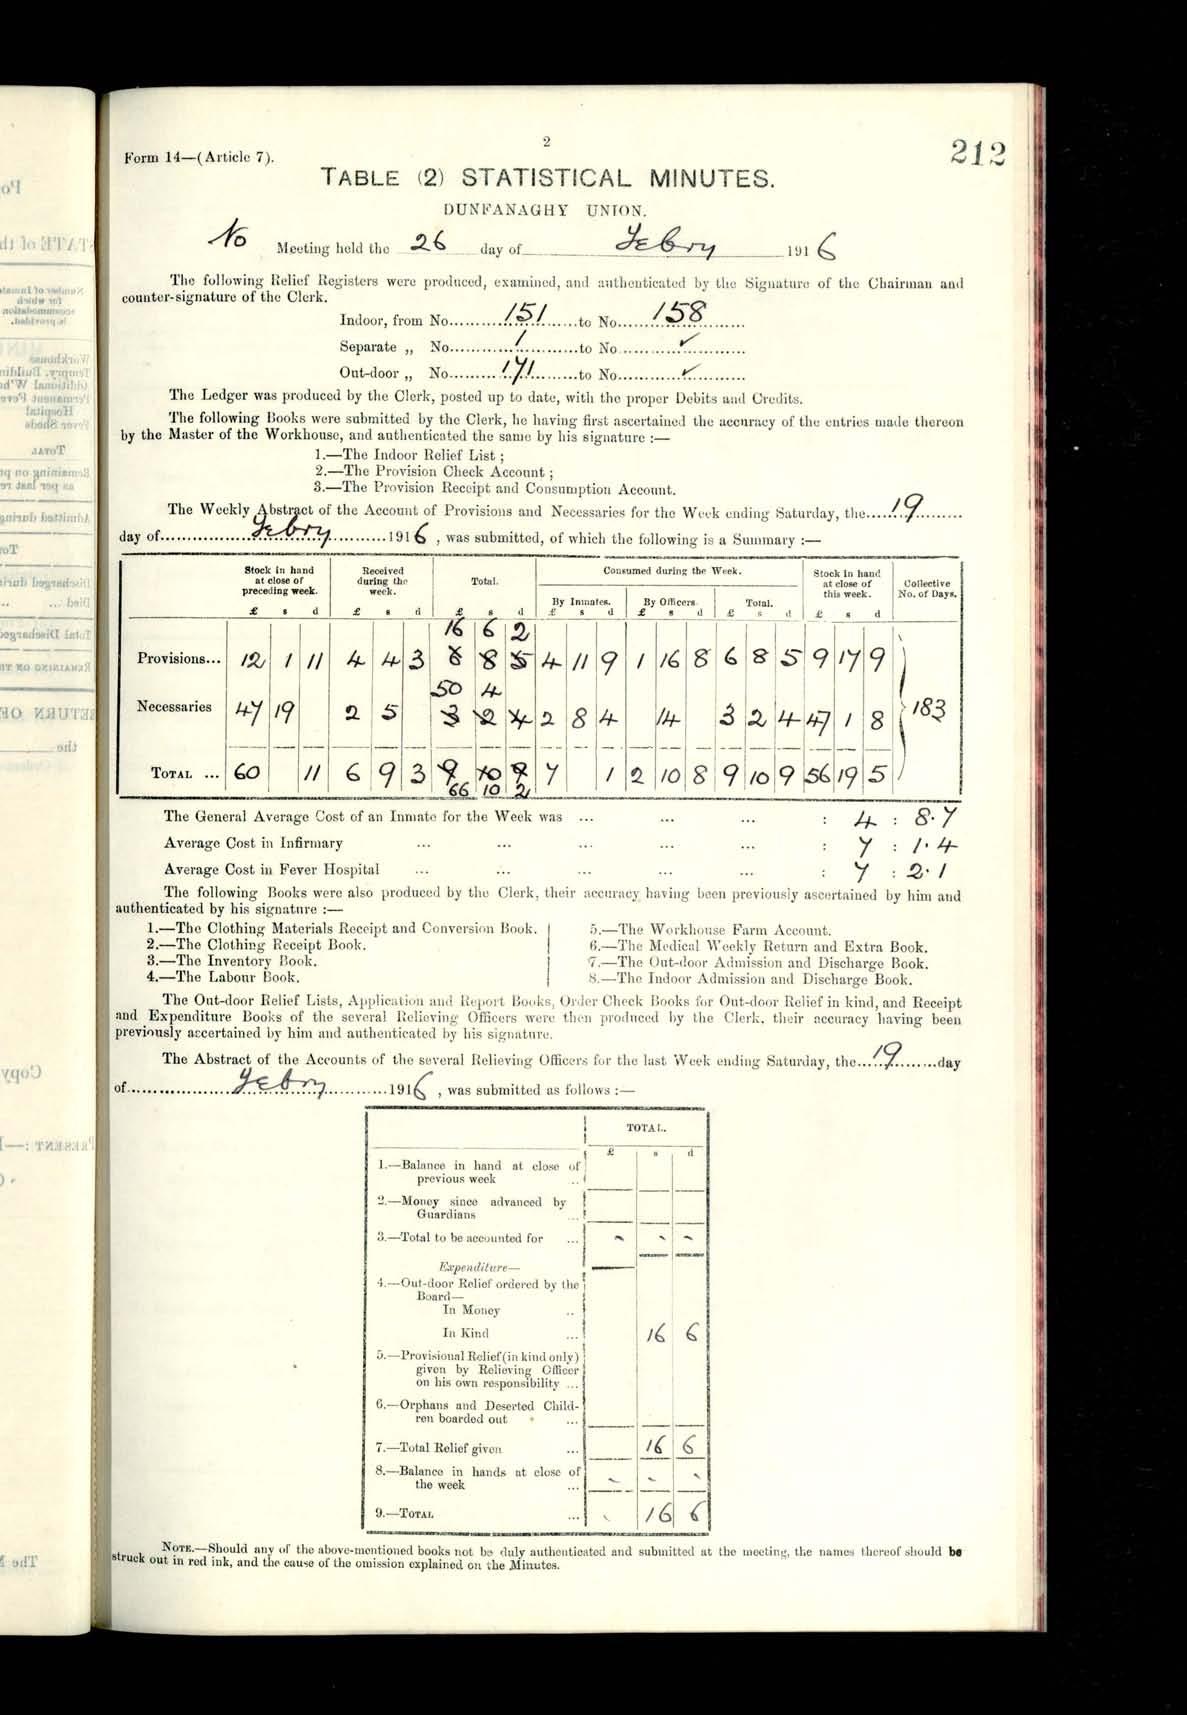 2
212
Form 14—(Article 7).
TABLE (2) STATISTICAL MINUTES.
DUNFANAGHY UNION.
No Meeting held the 26 day of Febry 1916
The following Relief Registers were produced, examined, and authenticated by the Signature of the Chairman and
counter-signature of the Clerk.
Indoor, from No. 151 to No. 158
Separate „ No. 1 to No. ✓
Out-door „ No. 171 to No. ✓
The Ledger was produced by the Clerk, posted up to date, with the proper Debits and Credits.
The following Books were submitted by the Clerk, he having first ascertained the accuracy of the entries made thereon
by the Master of the Workhouse, and authenticated the same by his signature :—
1.—The Indoor Relief List ;
2.—The Provision Check Account ;
3.—The Provision Receipt and Consumption Account.
The Weekly Abstract of the Account of Provisions and Necessaries for the Week ending Saturday, the 19
day of Febry 1916 , was submitted, of which the following is a Summary :—
Stock in hand at close of preceding week. Received during the week. Total. Consumed during the Week. Stock in hand at close of this week. Collective No. of Days.
By Inmates. By Officers. Total.
£ s d £ s d £ s d £ s d £ s d £ s d £ s d
16 6 2
Provisions... 12 1 11 4 4 3 8 8 5 4 11 9 1 16 8 6 8 5 9 17 9
50 4
Necessaries 47 19 2 5 3 2 4 2 8 4 14 3 2 4 47 1 8 183
TOTAL ... 60 11 6 9 3 9 10 9 7 1 2 10 8 9 10 9 56 19 5
66 10 2
The General Average Cost of an Inmate for the Week was ... ... ... : 4 : 8.7
Average Cost in Infirmary ... ... ... ... ... : 7 : 1.4
Average Cost in Fever Hospital ... ... ... ... ... : 7 : 2.1
The following Books were also produced by the Clerk, their accuracy having been previously ascertained by him and
authenticated by his signature :—
1.—The Clothing Materials Receipt and Conversion Book.
2.—The Clothing Receipt Book.
3.—The Inventory Book.
4.—The Labour Book.
5.—The Workhouse Farm Account.
6.—The Medical Weekly Return and Extra Book.
7.—The Out-door Admission and Discharge Book.
8.—The Indoor Admission and Discharge Book.
The Out-door Relief Lists, Application and Report Books, Order Check Books for Out-door Relief in kind, and Receipt
and Expenditure Books of the several Relieving Officers were then produced by the Clerk, their accuracy having been
previously ascertained by him and authenticated by his signature.
The Abstract of the Accounts of the several Relieving Officers for the last Week ending Saturday, the 19 day
of Febry 1916 , was submitted as follows :—
TOTAL.
£ s d
1.—Balance in hand at close of
previous week ..
2.—Money since advanced by
Guardians ...
3.—Total to be accounted for ...
Expenditure—
4.—Out-door Relief ordered by the
Board—
In Money ..
In Kind ... 16 6
5.—Provisional Relief (in kind only)
given by Relieving Officer
on his own responsibility ...
6.—Orphans and Deserted Child-
ren boarded out ...
7.—Total Relief given ... 16 6
8.—Balance in hands at close of
the week ...
9.—TOTAL ... 16 6
NOTE.—Should any of the above-mentioned books not be duly authenticated and submitted at the meeting, the names thereof should be
struck out in red ink, and the cause of the omission explained on the Minutes.